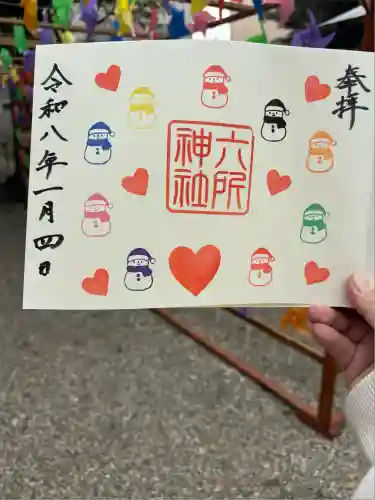 奉拝
六所
神社
令和八年一月四日